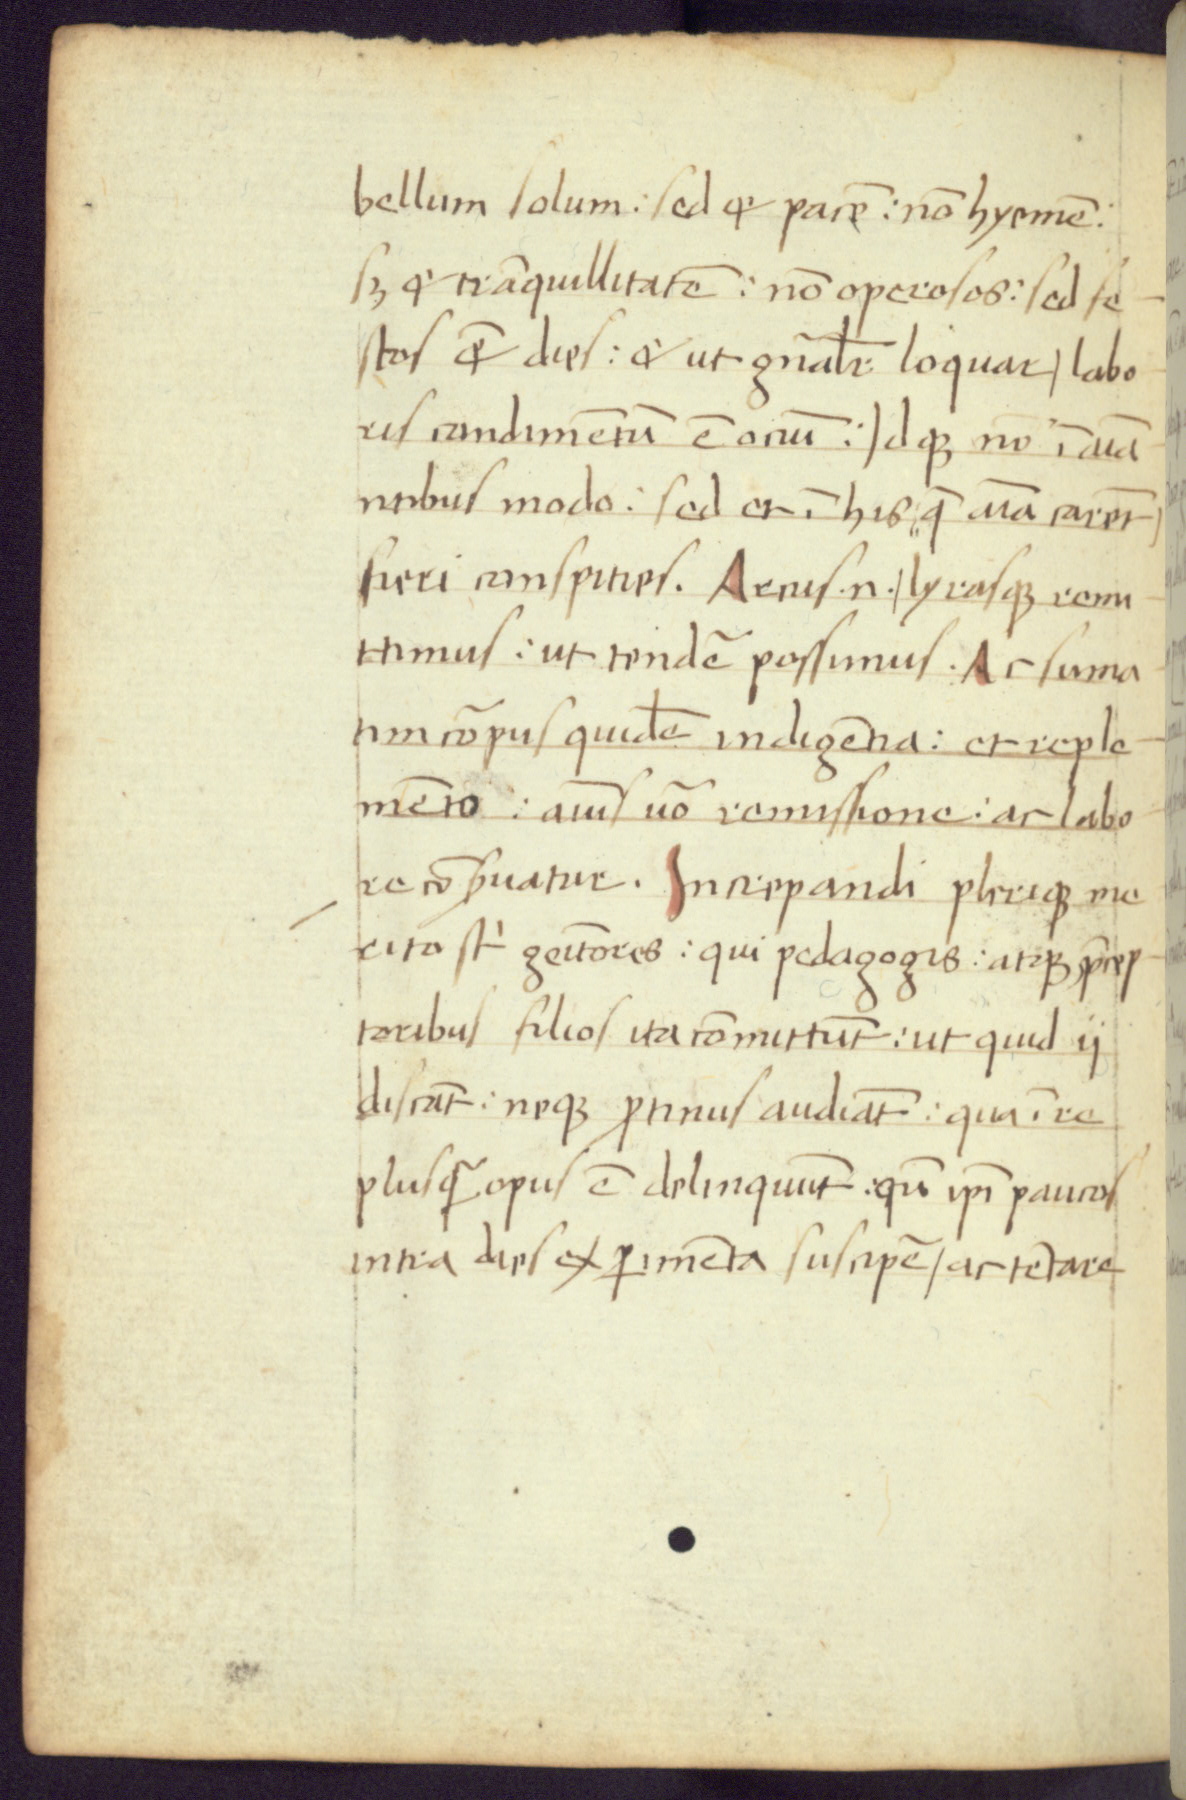 bellum solum: sed & pacē: nō hyemē:
sꝫ & trāquillitatē: nō operosos: sed fe-
stos &̄ dies: & ut gn̄alr̄ loquar / labo-
ris condimētū ē ociū: / Idqꝫ nō ī aīā-
ntibus modo: sed et ī his, q̄ aīa carēt /
fieri conspicies. Arcus .n. / lyrasqꝫ remi-
ttimus: ut tendē possimus. Ac suma-
tim cōpus quidē indigētia: et reple-
mēto: aīus ūo remissione: ac labo-
re cōs̄uatur. Increpandi pleriqꝫ me-
rito st̄ geītores: qui pedagogis: atqꝫ p̄cep-
toribus filios ita cōmittūt: ut quid ij
discāt: neqꝫ ꝓtinus audiāt: qua ī re
plusq̄ opus ē delinquūt: qū ipī paucos
intra dies exꝑimēta suscipē / ac tētare